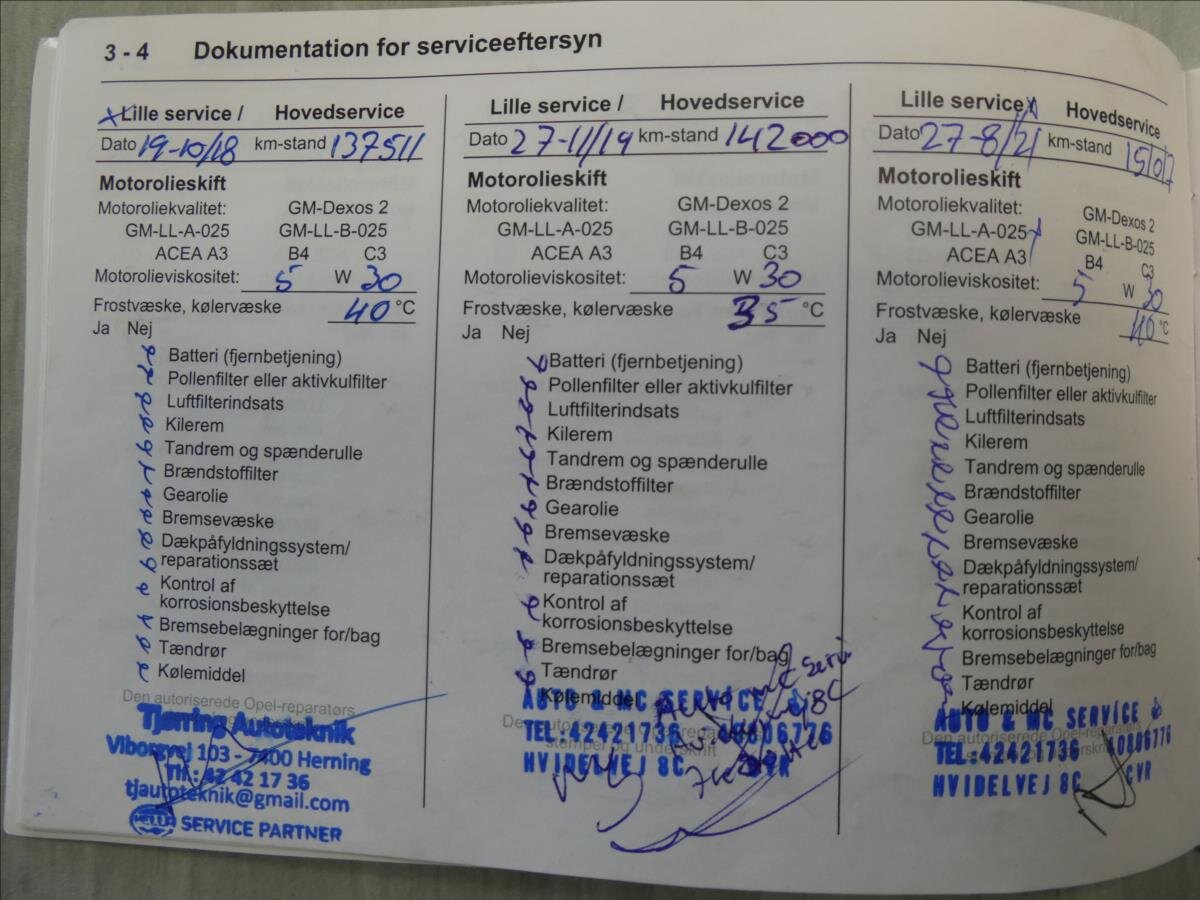 3 - 4 Dokumentation for serviceeftersyn
Lille service / Hovedservice
Dato 19-10/18 km-stand 137511
Motorolieskift
Motoroliekvalitet: GM-Dexos 2
GM-LL-A-025 GM-LL-B-025
ACEA A3 B4 C3
Motorolieviskositet: 5 W 30
Frostvæske, kølervæske 40 °C
Ja Nej
Batteri (fjernbetjening)
Pollenfilter eller aktivkulfilter
Luftfilterindsats
Kilerem
Tandrem og spænderulle
Brændstoffilter
Gearolie
Bremsevæske
Dækpåfyldningssystem/
reparationssæt
Kontrol af
korrosionsbeskyttelse
Bremsebelægninger for/bag
Tændrør
Kølemiddel
Den autoriserede Opel-reparatørs
Tjørring Autoteknik
Viborgvej 103 - 7400 Herning
Tlf.: 42 42 17 36
tjautoteknik@gmail.com
HELLA SERVICE PARTNER
Lille service / Hovedservice
Dato 27-11/19 km-stand 142000
Motorolieskift
Motoroliekvalitet: GM-Dexos 2
GM-LL-A-025 GM-LL-B-025
ACEA A3 B4 C3
Motorolieviskositet: 5 W 30
Frostvæske, kølervæske 35 °C
Ja Nej
Batteri (fjernbetjening)
Pollenfilter eller aktivkulfilter
Luftfilterindsats
Kilerem
Tandrem og spænderulle
Brændstoffilter
Gearolie
Bremsevæske
Dækpåfyldningssystem/
reparationssæt
Kontrol af
korrosionsbeskyttelse
Bremsebelægninger for/bag
Tændrør
Kølemiddel
AUTO & MC SERVICE
TEL:42421736 40806776
stempel og underskrift
HVIDELVEJ 8C CVR
Lille service / Hovedservice
Dato 27-8/21 km-stand
Motorolieskift
Motoroliekvalitet: GM-Dexos 2
GM-LL-A-025 GM-LL-B-025
ACEA A3 B4 C3
Motorolieviskositet: 5 W 30
Frostvæske, kølervæske 40 °C
Ja Nej
Batteri (fjernbetjening)
Pollenfilter eller aktivkulfilter
Luftfilterindsats
Kilerem
Tandrem og spænderulle
Brændstoffilter
Gearolie
Bremsevæske
Dækpåfyldningssystem/
reparationssæt
Kontrol af
korrosionsbeskyttelse
Bremsebelægninger for/bag
Tændrør
Kølemiddel
AUTO & MC SERVICE
Den autoriserede Opel-reparatørs
TEL:42421736 40806776
HVIDELVEJ 8C CVR